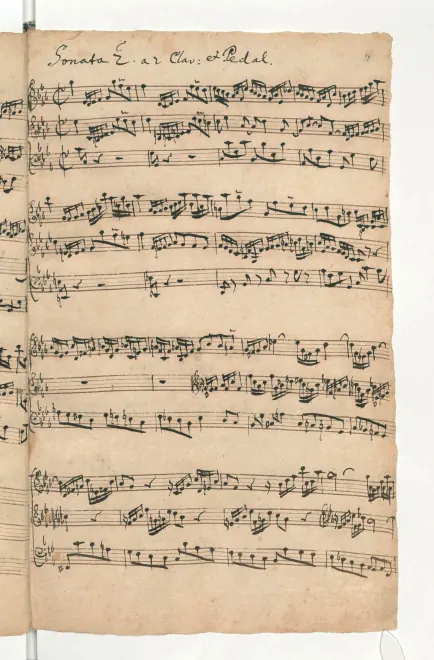 Sonata 2. a 2 Clav: et Pedal.